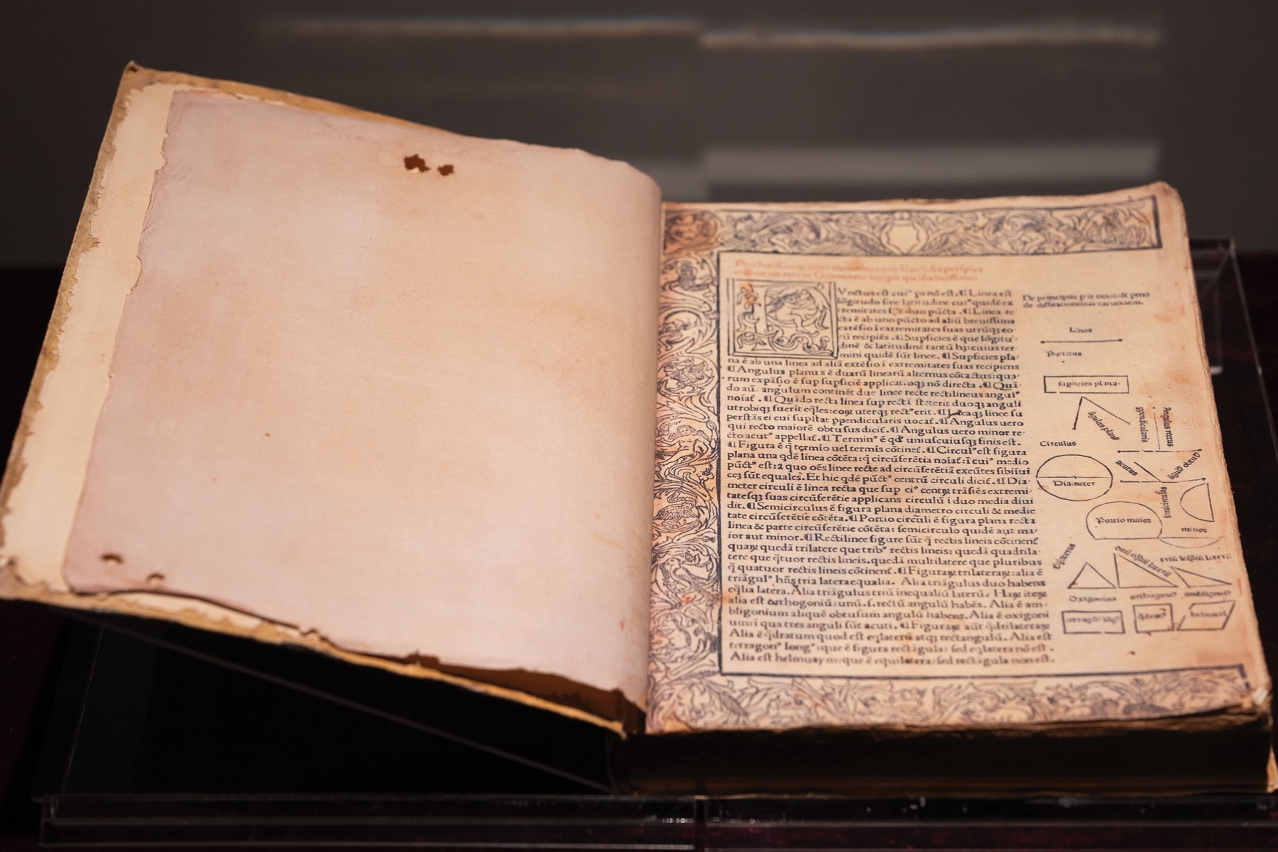 Preclarissimus liber elementorum Euclidis perspi-
cacissimi: in artem Geometrie incipit quafoelicissime:
Vnctus est cuiꝰ ps nō est. ¶ Linea est
lōgitudo sine latitudine cuiꝰ quidē ex
tremitates sūt duo pūcta. ¶ Linea re
cta ē ab uno pūcto ad aliū breuissima
extēsio ī extremitates suas utrūqꝫ eo
rū recipiēs. ¶ Supficies ē que lōgitu
dinē & latitudinē tantū hꝫ: cuius ter
mini quidē sūt linee. ¶ Supficies pla
na ē ab una linea ad aliā extēsio ī extremitates suas recipiens
¶ Angulus planus ē duarū linearū alternus cōtactus: qua
rum expāsio ē sup supficiē applicatioqꝫ nō directa. ¶ Quā
do aū. angulum continēt due linee recte rectilineus angulꝰ
noiaƭ. ¶ Qn̄do recta linea sup rectā steterit duoqꝫ anguli
utrobiqꝫ fuerit eq̄les: eoꝝ uterqꝫ rectꝰ erit. ¶ Lineaqꝫ linee su
perstās ei cui supstat ppendicularis uocaƭ. ¶ Angulus uero
qui recto maiore obtusus diciƭ. ¶ Angulus uero minor re
cto acutꝰ appellaƭ. ¶ Terminꝰ ē qđ uniuscuiusqꝫ finis est.
¶ Figura ē q̄ termio uel termis cōtineƭ. ¶ Circulꝰ est figura
plana una qdē linea cōtēta: q̄ circūferētia noiaƭ: ī cuiꝰ medio
pūctꝰ est: a quo oēs linee recte ad circūferētiā exeūtes sibiīui
cez sūt equales. Et hic qdē pūctꝰ centrū circuli diciƭ. ¶ Dia
meter circuli ē linea recta que sup eiꝰ centꝝ trāsiēs extremi
tatesqꝫ suas circūferētie applicans circulū ī duo media diui
dit. ¶ Semicirculus ē figura plana diametro circuli & medie
tate circūferētie cōtēta. ¶ Portio circuli ē figura plana recta
linea & parte circūferētie cōtēta: semicirculo quidē aut ma
ior aut minor. ¶ Rectilinee figure sūt q̄ rectis lineis cōtinenƭ
quaꝝ quedā trilatere que tribꝰ rectis lineis: quedā quadrila
tere que q̄tuor rectis lineis. quedā multilatere que pluribus
q̄ quatuor rectis lineis cōtinenƭ. ¶ Figuraꝝ trilateraꝝ: alia ē
triāgulꝰ hn̄s tria latera equalia. Alia triāgulus duo habens
eq̄lia latera. Alia triāgulus triū inequaliū laterū. Haꝝ iteꝝ
alia est orthogoniū: unū. s. rectū angulū habēs. Alia ē am
bligonium aliquē obtusum angulū habens. Alia ē oxigoni
um: ī qua tres anguli sūt acuti. ¶ Figuraꝝ aūt q̄drilateraꝝ
Alia ē q̄dratum quod est eq̄lateꝝ atqꝫ rectangulū. Alia est
tetragonꝰ longꝰ: que ē figura rectāgula: sed eq̄latera nō est.
Alia est helmuaym: que ē equilatera: sed rectāgula non est.
De principijs p se notis: & pmo
de diffinitionibus earundem.
Linea
Punctus
supficies plana
Circulus
Diameter
Portio maior
minor
Oxigonius